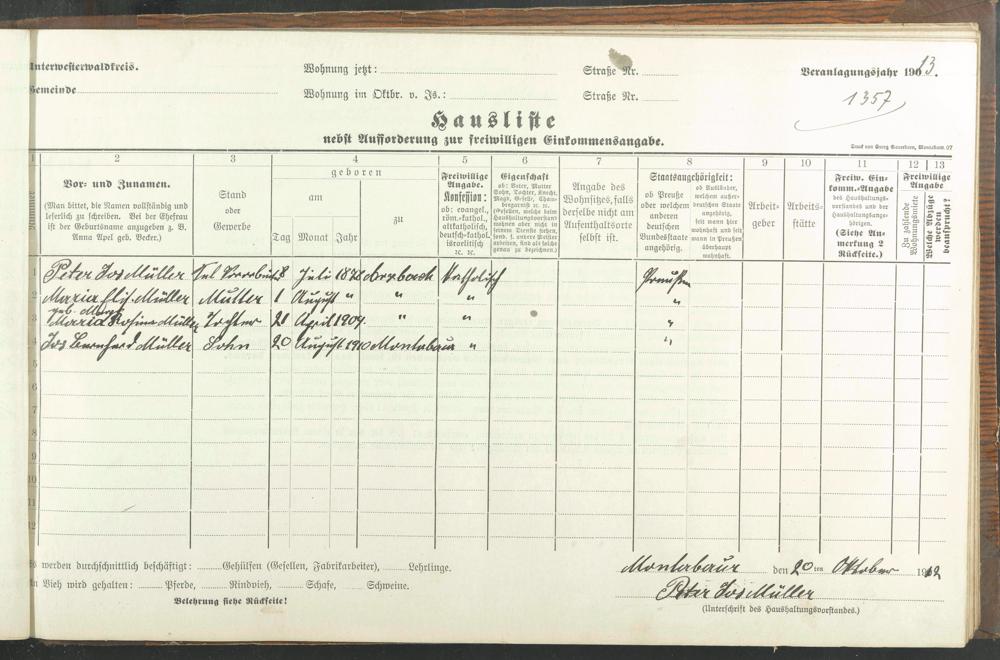 Unterwesterwaldkreis.
Wohnung jetzt:
Straße Nr.
Veranlagungsjahr 1913.
Gemeinde
Wohnung im Oktbr. v. Js.:
Straße Nr.
1357
Hausliste
nebst Aufforderung zur freiwilligen Einkommensangabe.
Druck von Georg Sauerborn, Montabaur. 07
1 2 3 4 5 6 7 8 9 10 11 12 13
Nummer
Vor- und Zunamen.
(Man bittet, die Namen vollständig und
leserlich zu schreiben. Bei der Ehefrau
ist der Geburtsname anzugeben z. B.
Anna Apel geb. Becker.)
Stand
oder
Gewerbe
geboren
am
Tag Monat Jahr
zu
Freiwillige
Angabe.
Konfession:
ob: evangel.,
röm.-kathol.,
altkatholisch,
deutsch-kathol.
israelitisch
ꝛc. ꝛc.
Eigenschaft
ob: Vater, Mutter
Sohn, Tochter, Knecht,
Magd, Geselle,
Angabe des
Wohnsitzes, falls
derselbe nicht am
Aufenthaltsorte
selbst ist.
Staatsangehörigkeit:
ob Preuße
oder welchem
anderen
deutschen
Bundesstaate
angehörig.
ob Ausländer,
welchem außer-
deutschen Staate
angehörig,
seit wann hier
wohnhaft und seit
wann in Preußen
überhaupt
wohnhaft.
Arbeit-
geber
Arbeits-
stätte
Freiw. Ein-
komm.-Angabe
des Haushaltungs-
vorstandes und der
Haushaltungsange-
hörigen.
(Siehe An-
merkung 2
Rückseite.)
Freiwillige
Angabe
Zu zahlende
Wohnungsmiete
Welche Abzüge
werden
beansprucht?
1 Peter Jos Müller 8 Juli Katholisch Preußen
2 Maria Elis. Müller Mutter 1 August " " " "
geb.
3 Maria Rosina Müller Tochter 21 April 1909. " " "
4 Jos Bernhard Müller Sohn 20 August 1910 Montabaur " "
5
6
7
8
9
10
11
12
Es werden durchschnittlich beschäftigt: Gehülfen (Gesellen, Fabrikarbeiter), Lehrlinge.
An Vieh wird gehalten: Pferde, Rindvieh, Schafe, Schweine.
Belehrung siehe Rückseite!
Montabaur den 20ten Oktober 1912
Peter Jos Müller
(Unterschrift des Haushaltungsvorstandes.)